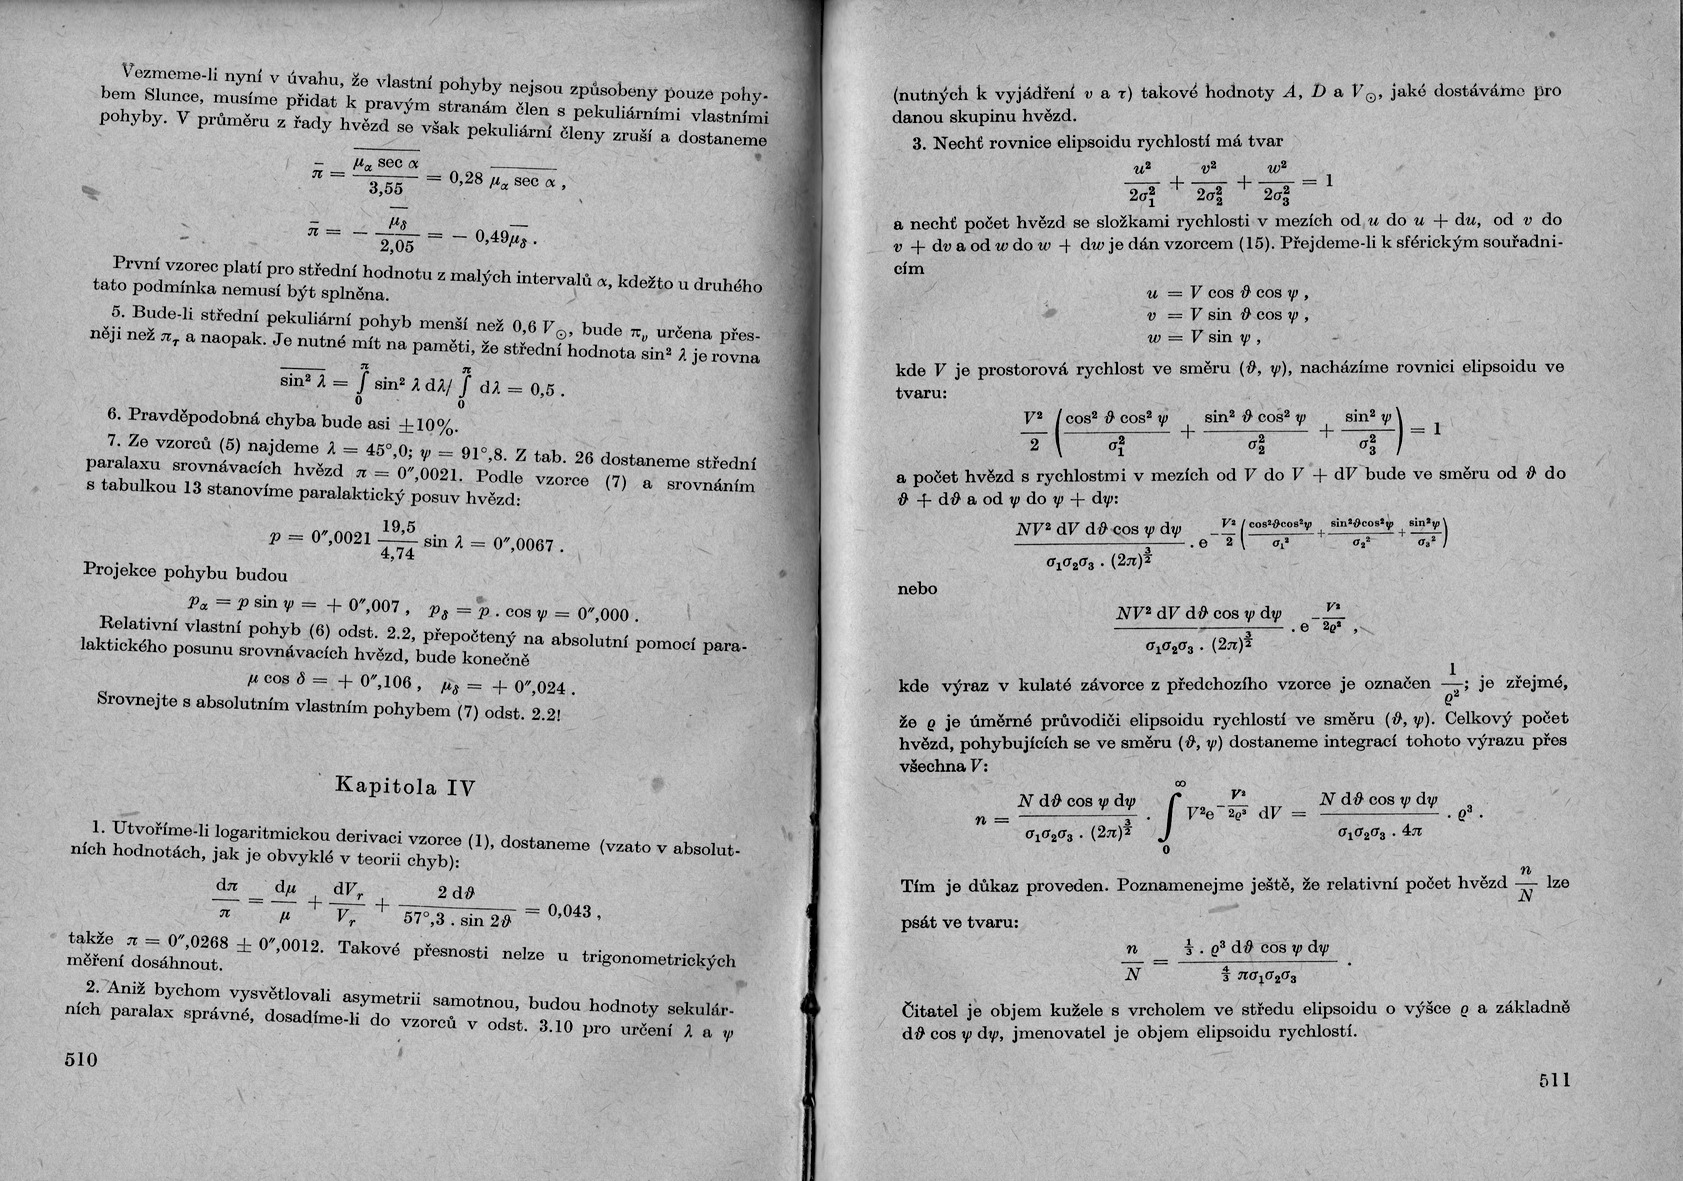 Vezmeme-li nyní v úvahu, že vlastní pohyby nejsou způsobeny pouze pohy-
bem Slunce, musíme přidat k pravým stranám člen s pekuliárními vlastními
pohyby. V průměru z řady hvězd se však pekuliární členy zruší a dostaneme
π̄ = \overline{μ_α sec α} / 3,55 = 0,28 \overline{μ_α sec α} ,
π̄ = − \overline{μ_δ} / 2,05 = − 0,49 \overline{μ_δ} .
První vzorec platí pro střední hodnotu z malých intervalů α, kdežto u druhého
tato podmínka nemusí být splněna.
5. Bude-li střední pekuliární pohyb menší než 0,6 V_⊙, bude π_υ určena přes-
něji než π_τ a naopak. Je nutné mít na paměti, že střední hodnota sin² λ je rovna
\overline{sin² λ} = ∫_0^π sin² λ dλ/ ∫_0^π dλ = 0,5 .
6. Pravděpodobná chyba bude asi ±10%.
7. Ze vzorců (5) najdeme λ = 45°,0; ψ = 91°,8. Z tab. 26 dostaneme střední
paralaxu srovnávacích hvězd π = 0″,0021. Podle vzorce (7) a srovnáním
s tabulkou 13 stanovíme paralaktický posuv hvězd:
p = 0″,0021 19,5/4,74 sin λ = 0″,0067 .
Projekce pohybu budou
p_α = p sin ψ = + 0″,007 , p_δ = p . cos ψ = 0″,000 .
Relativní vlastní pohyb (6) odst. 2.2, přepočtený na absolutní pomocí para-
laktického posunu srovnávacích hvězd, bude konečně
μ cos δ = + 0″,106 , μ_δ = + 0″,024 .
Srovnejte s absolutním vlastním pohybem (7) odst. 2.2!
Kapitola IV
1. Utvoříme-li logaritmickou derivaci vzorce (1), dostaneme (vzato v absolut-
ních hodnotách, jak je obvyklé v teorii chyb):
dπ/π = dμ/μ + dV_r/V_r + 2 dϑ / 57°,3 . sin 2ϑ = 0,043 ,
takže π = 0″,0268 ± 0″,0012. Takové přesnosti nelze u trigonometrických
měření dosáhnout.
2. Aniž bychom vysvětlovali asymetrii samotnou, budou hodnoty sekulár-
ních paralax správné, dosadíme-li do vzorců v odst. 3.10 pro určení λ a ψ
510
(nutných k vyjádření υ a τ) takové hodnoty A, D a V_⊙, jaké dostáváme pro
danou skupinu hvězd.
3. Nechť rovnice elipsoidu rychlostí má tvar
u²/2σ₁² + v²/2σ₂² + w²/2σ₃² = 1
a nechť počet hvězd se složkami rychlosti v mezích od u do u + du, od v do
v + dv a od w do w + dw je dán vzorcem (15). Přejdeme-li k sférickým souřadni-
cím
u = V cos ϑ cos ψ ,
v = V sin ϑ cos ψ ,
w = V sin ψ ,
kde V je prostorová rychlost ve směru (ϑ, ψ), nacházíme rovnici elipsoidu ve
tvaru:
V²/2 ( cos² ϑ cos² ψ / σ₁² + sin² ϑ cos² ψ / σ₂² + sin² ψ / σ₃² ) = 1
a počet hvězd s rychlostmi v mezích od V do V + dV bude ve směru od ϑ do
ϑ + dϑ a od ψ do ψ + dψ:
NV² dV dϑ cos ψ dψ / σ₁σ₂σ₃ . (2π)^{3/2} . e^{−V²/2 ( cos²ϑcos²ψ/σ₁² + sin²ϑcos²ψ/σ₂² + sin²ψ/σ₃² )}
nebo
NV² dV dϑ cos ψ dψ / σ₁σ₂σ₃ . (2π)^{3/2} . e^{−V²/2ϱ²} ,
kde výraz v kulaté závorce z předchozího vzorce je označen 1/ϱ²; je zřejmé,
že ϱ je úměrné průvodiči elipsoidu rychlostí ve směru (ϑ, ψ). Celkový počet
hvězd, pohybujících se ve směru (ϑ, ψ) dostaneme integrací tohoto výrazu přes
všechna V:
n = N dϑ cos ψ dψ / σ₁σ₂σ₃ . (2π)^{3/2} . ∫_0^∞ V²e^{−V²/2ϱ²} dV = N dϑ cos ψ dψ / σ₁σ₂σ₃ . 4π . ϱ³ .
Tím je důkaz proveden. Poznamenejme ještě, že relativní počet hvězd n/N lze
psát ve tvaru:
n/N = ⅓ . ϱ³ dϑ cos ψ dψ / 4/3 πσ₁σ₂σ₃ .
Čitatel je objem kužele s vrcholem ve středu elipsoidu o výšce ϱ a základně
dϑ cos ψ dψ, jmenovatel je objem elipsoidu rychlostí.
511